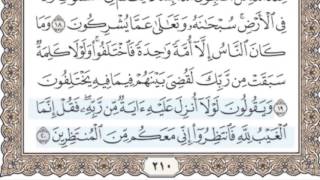 فِي ٱلْأَرْضِ ۚ سُبْحَٰنَهُۥ وَتَعَٰلَىٰ عَمَّا يُشْرِكُونَ ١٨ وَمَا
كَانَ ٱلنَّاسُ إِلَّآ أُمَّةً وَٰحِدَةً فَٱخْتَلَفُوا۟ ۚ وَلَوْلَا كَلِمَةٌ
سَبَقَتْ مِن رَّبِّكَ لَقُضِيَ بَيْنَهُمْ فِيمَا فِيهِ يَخْتَلِفُونَ
١٩ وَيَقُولُونَ لَوْلَآ أُنزِلَ عَلَيْهِ ءَايَةٌ مِّن رَّبِّهِۦ ۖ فَقُلْ إِنَّمَا
ٱلْغَيْبُ لِلَّهِ فَٱنتَظِرُوٓا۟ إِنِّي مَعَكُم مِّنَ ٱلْمُنتَظِرِينَ ٢٠
٢١٠